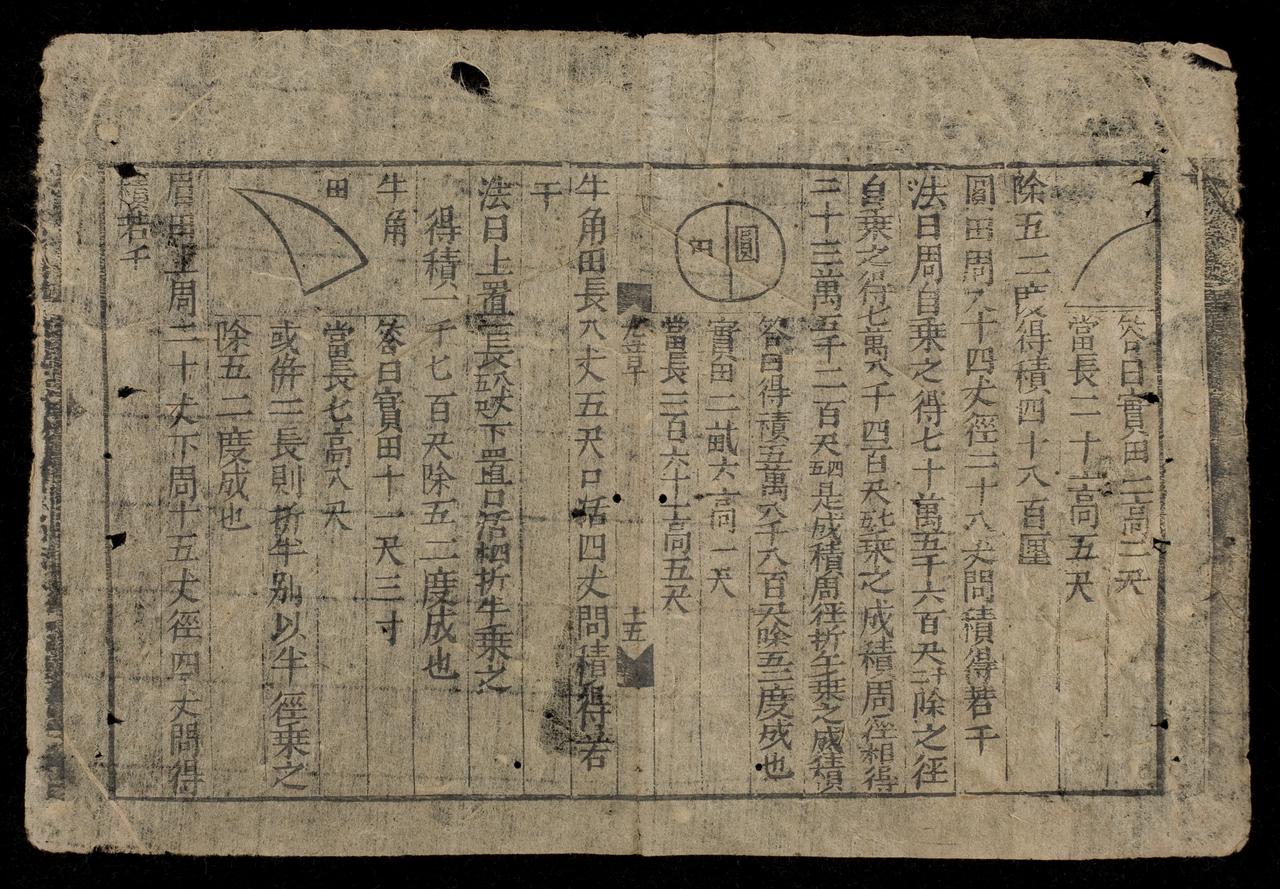 答曰實田二高二尺
當長二十高五尺
除五二度得積四十八百厘
圓田周八十四丈徑二十八丈問積得若干
法曰周自乗之得七十萬五千六百尺 除之徑
自乗之得七萬八千四百尺 乗之成積周徑相得
二十三萬五千二百尺 是成積周徑折半乗之成積
答曰得積五萬八千八百尺除五二度成也
實田二貳六高一尺
當長二百六十高五尺
圓
田
十五
牛角田長八丈五尺口括四丈問積得若
干
法曰上置長 下置口活 折半乗之
得積一千七百尺除五二度成也
牛角
田
答曰實田十一尺三寸
當長七高八尺
或併二長則折半別以半徑乗之
除五二度成也
眉田上周二十丈下周十五丈徑四丈問得
積若干